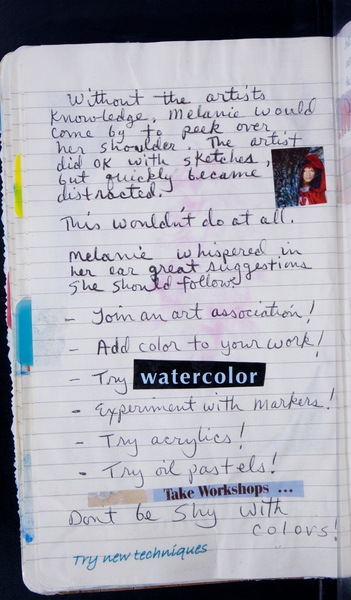 Without the artists
Knowledge, Melanie would
come by to peek over
her shoulder. The artist
did ok with sketches,
but quickly became
distracted.
This wouldn't do at all.
Melanie whispered in
her ear great suggestions
She should follow
- Join an art association!
- Add color to your work!
- Try watercolor
- Experiment with Markers!
- Try acrylics!
- Try oil pastels!
Take Workshops ...
Dont be shy with
colors!
Try new techniques